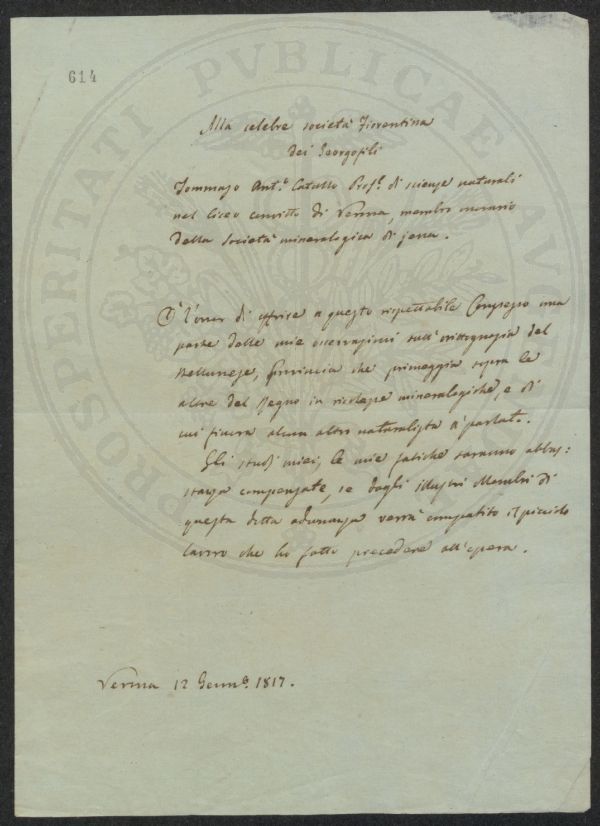 614
PROSPERITATI PVBLICAE AVGENDAE
Alla celebre società Fiorentina
dei Georgofili
Tommaso Ant.° Catullo Prof.e di scienze naturali
nel liceo convitto di Verona, membro onorario
della Società mineralogica di jena.
O' l'onor di offrire a questo rispettabile Consesso una
parte delle mie osservazioni sull'orittognosia del
Bellunese, Provincia che primeggia sopra le
altre del Regno in ricchezze mineralogiche, e di
cui finora alcun altro naturalista à parlato.
Gli studj miei, le mie fatiche saranno abbas:
stanza compensate, se dagli illustri Membri di
questa dotta adunanza verrà compatito il picciolo
lavoro che ho fatto precedere all'opera.
Verona 12 Genn.° 1817.